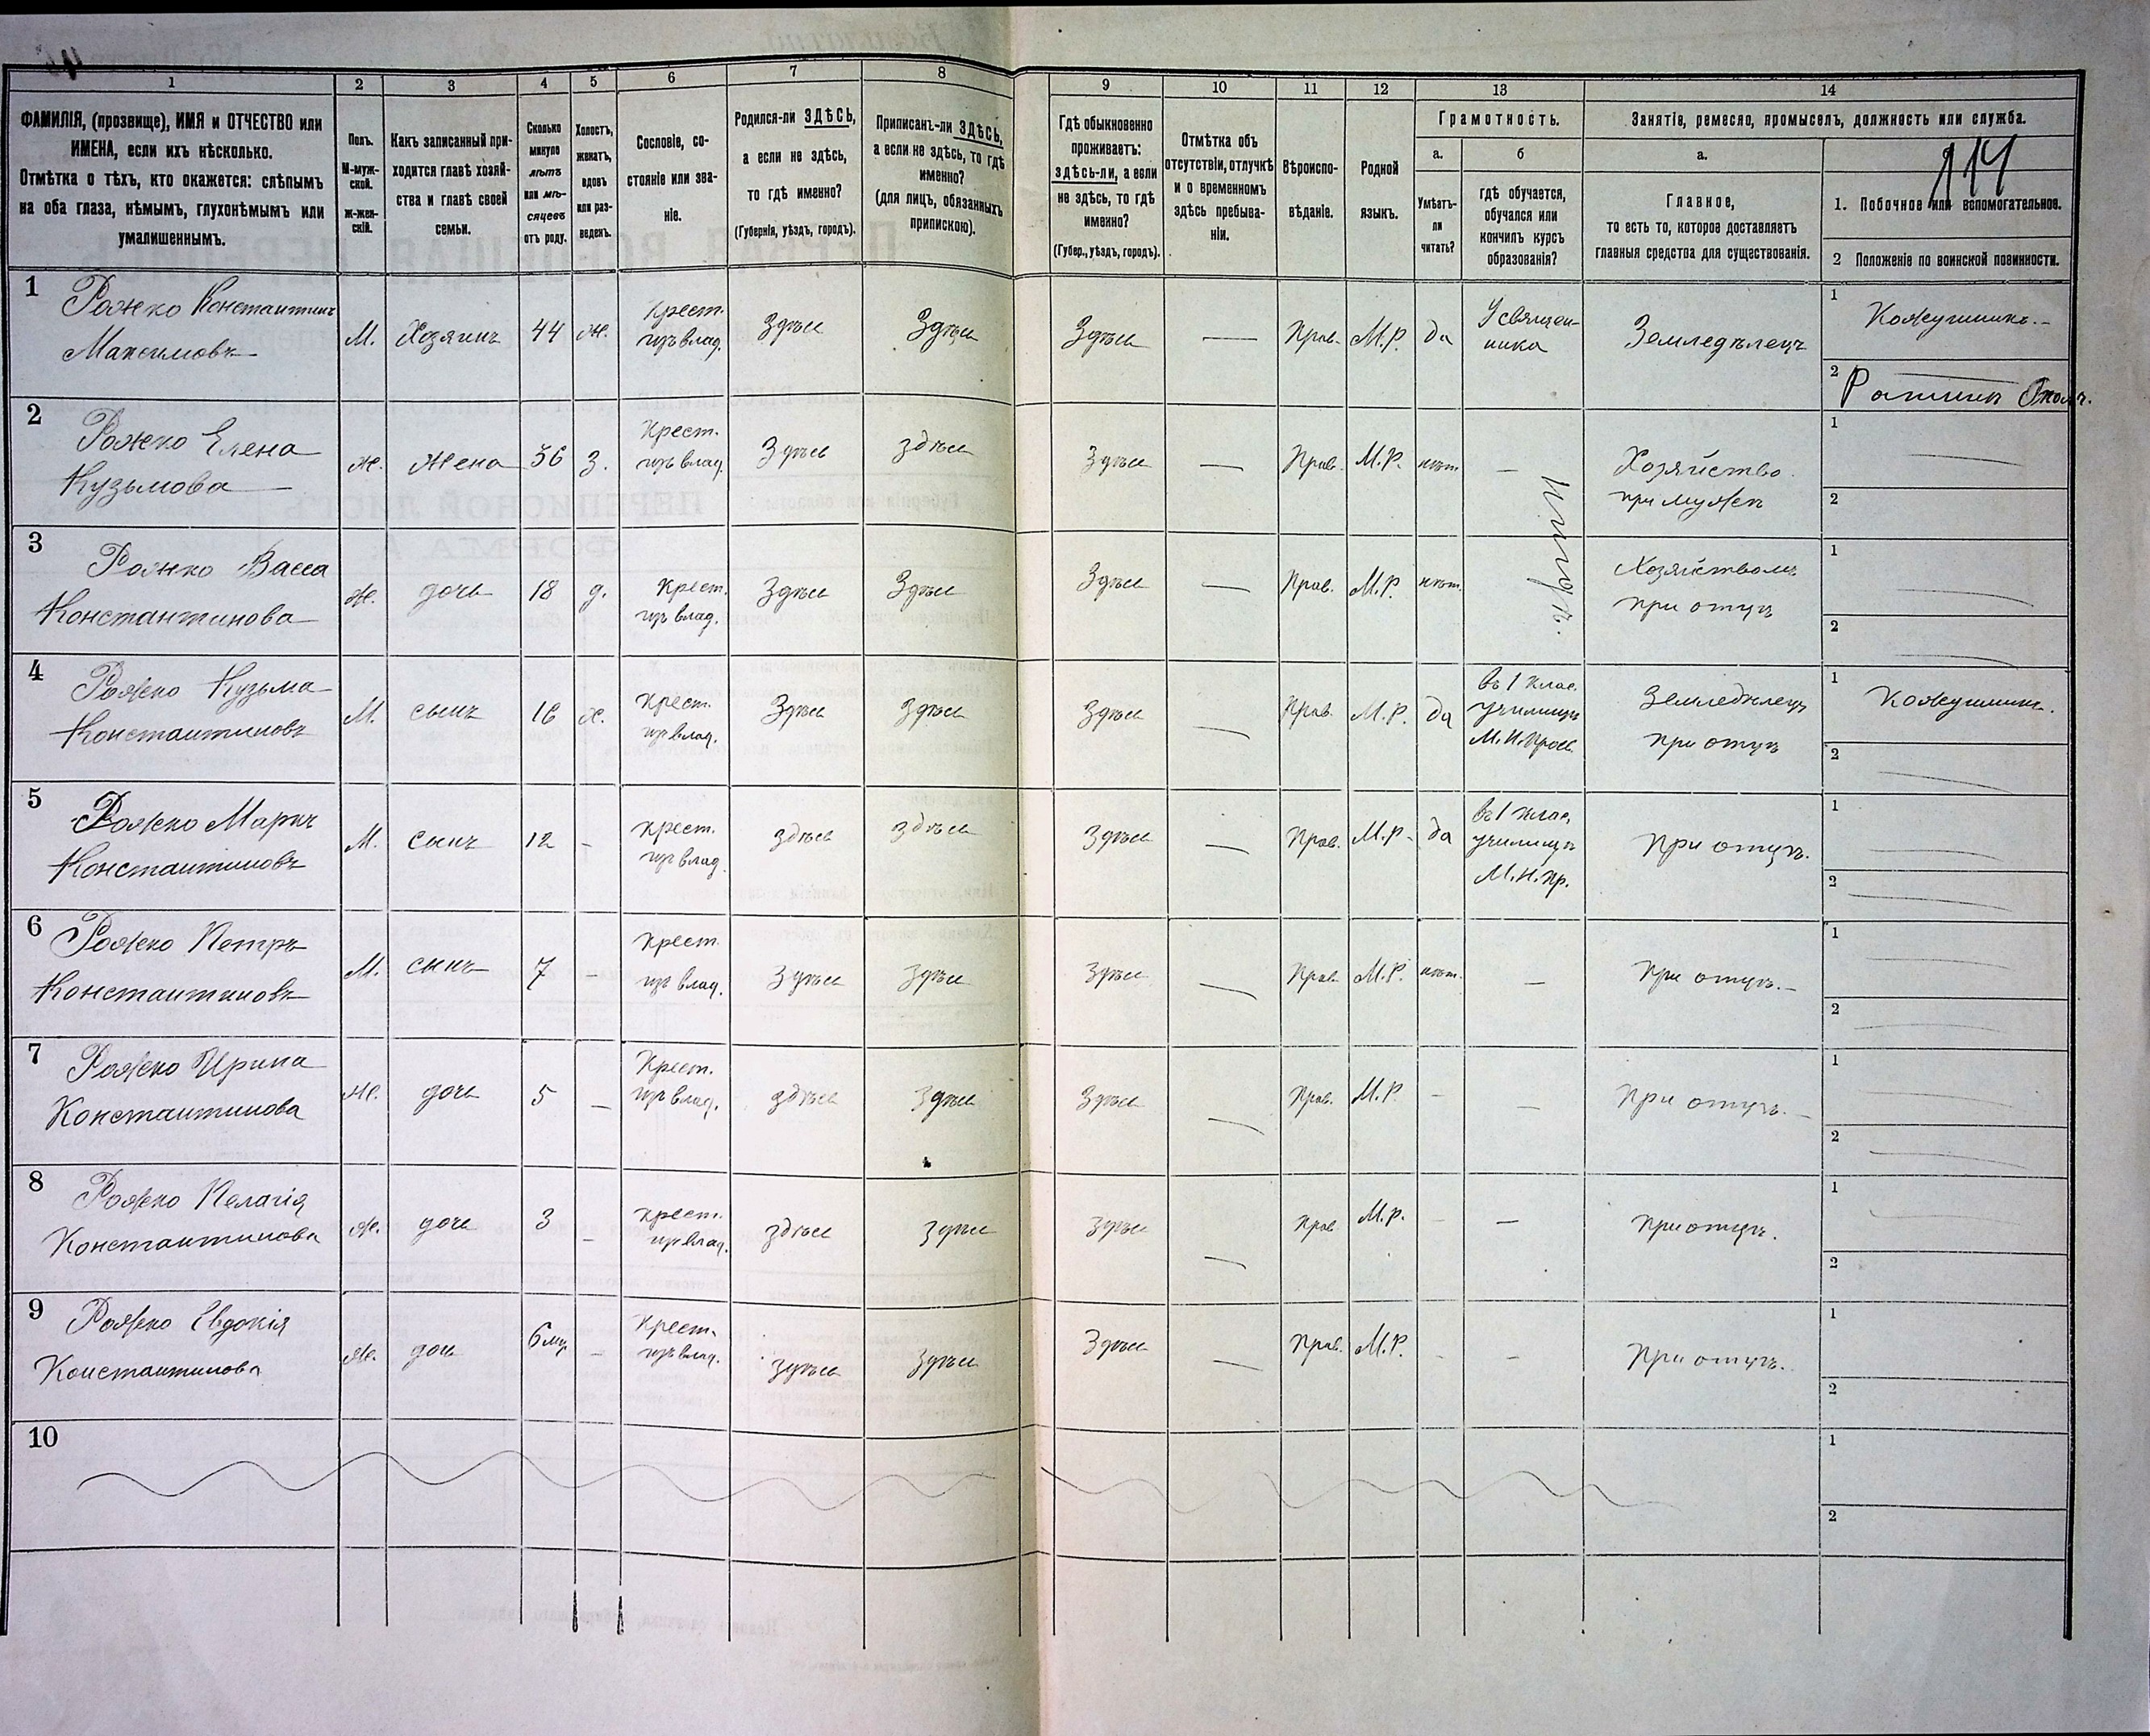 114
1 2 3 4 5 6 7 8 9 10 11 12 13 14
ФАМИЛІЯ, (прозвище), ИМЯ и ОТЧЕСТВО или
ИМЕНА, если ихъ нѣсколько.
Отмѣтка о тѣхъ, кто окажется: слѣпымъ
на оба глаза, нѣмымъ, глухонѣмымъ или
умалишеннымъ.
Полъ.
М-муж-
ской.
Ж-жен-
скій.
Какъ записанный при-
ходится главѣ хозяй-
ства и главѣ своей
семьи.
Сколько
минуло
лѣтъ
или мѣ-
сяцевъ
отъ роду.
Холостъ,
женатъ,
вдовъ
или раз-
веденъ.
Сословіе, со-
стояніе или зва-
ніе.
Родился-ли ЗДѢСЬ,
а если не здѣсь,
то гдѣ именно?
(Губернія, уѣздъ, городъ).
Приписанъ-ли ЗДѢСЬ,
а если не здѣсь, то гдѣ
именно?
(для лицъ, обязанныхъ
припискою).
Гдѣ обыкновенно
проживаетъ:
здѣсь-ли, а если
не здѣсь, то гдѣ
именно?
(Губер., уѣздъ, городъ).
Отмѣтка объ
отсутствіи, отлучкѣ
и о временномъ
здѣсь пребыва-
ніи.
Вѣроиспо-
вѣданіе.
Родной
языкъ.
Грамотность.
а.
Умѣетъ-
ли
читать?
б
гдѣ обучается,
обучался или
кончилъ курсъ
образованія?
Занятіе, ремесло, промыселъ, должность или служба.
а.
Главное,
то есть то, которое доставляетъ
главныя средства для существованія.
1. Побочное или вспомогательное.
2 Положеніе по воинской повинности.
1
Рожко Константинъ
Максимовъ
М. Хозяинъ 44 ж.
Крест.
изъ влад.
Здѣсь Здѣсь Здѣсь — Прав. М.Р. да
У священ-
ника
Земледѣлецъ
1 Кожушникъ.
2 Ратникъ Ополч.
2
Рожко Елена
Кузьмова
ж. Жена 36 З.
Крест.
изъ влад.
Здѣсь здѣсь Здѣсь — Прав. М.Р. нѣтъ —
Хозяйство
при мужѣ
1
2
3
Рожко Васса
Константинова
ж. дочь 18 д.
Крест.
изъ влад.
Здѣсь Здѣсь Здѣсь — Прав. М.Р. нѣтъ
Хозяйствомъ
при отцѣ
1
2
4
Рожко Кузьма
Константиновъ
М. сынъ 16 х.
Крест.
изъ влад.
Здѣсь Здѣсь Здѣсь — Прав. М.Р. да
въ 1 клас.
училищѣ
М.Н.Просв.
Земледѣлецъ
при отцѣ
1 Кожушник.
2
5
Рожко Маркъ
Константиновъ
М. сынъ 12 -
Крест.
изъ влад.
здѣсь здѣсь Здѣсь — Прав. М.Р. да
въ 1 клас.
училищѣ
М.Н.Пр.
При отцѣ.
1
2
6
Рожко Петръ
Константиновъ
М. сынъ 7 -
Крест.
изъ влад.
Здѣсь Здѣсь Здѣсь — Прав. М.Р. нѣтъ. —
При отцѣ.
1
2
7
Рожко Ирина
Константинова
Ж. дочь 5 -
Крест.
изъ влад.
здѣсь Здѣсь Здѣсь — Прав. М.Р. - —
При отцѣ.
1
2
8
Рожко Пелагія
Константинова
Ж. дочь 3 -
Крест.
изъ влад.
здѣсь здѣсь здѣсь — Прав. М.Р. - —
При отцѣ.
1
2
9
Рожко Евдокія
Константинова
Ж. дочь 6 мц. -
Крест.
изъ влад.
здѣсь Здѣсь Здѣсь — Прав. М.Р. - —
При отцѣ.
1
2
10
1
2